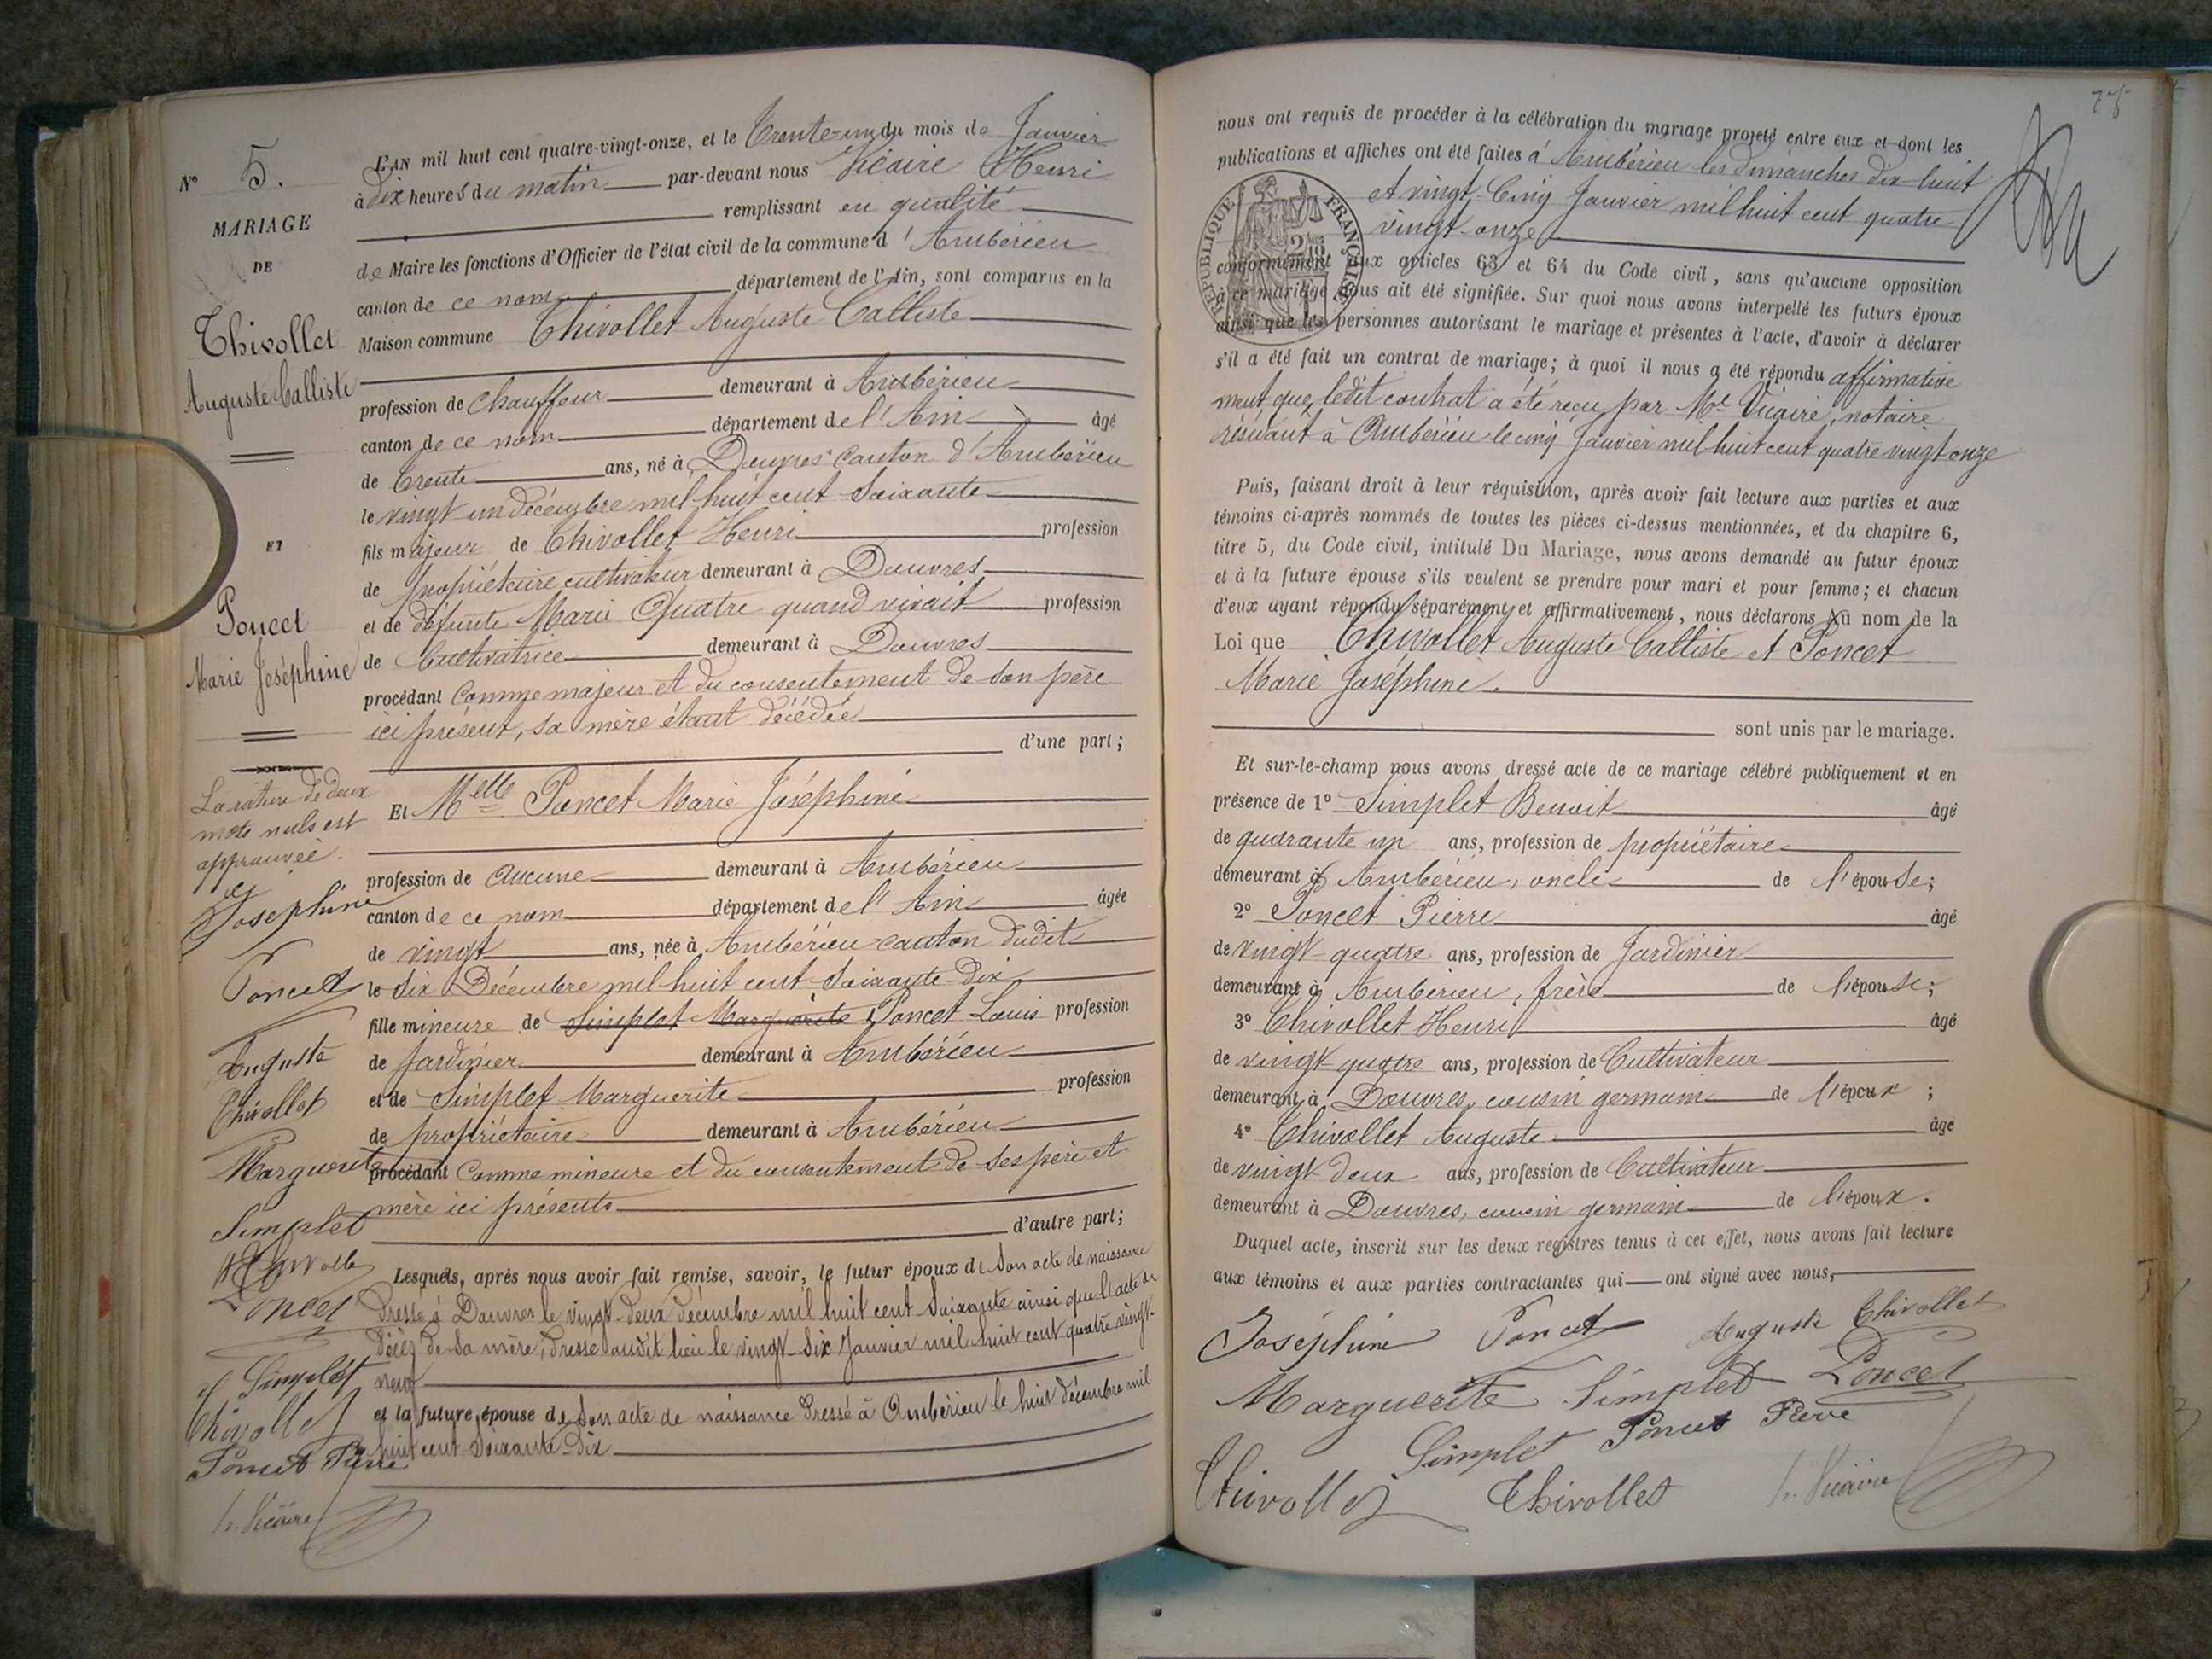 N° 5.
MARIAGE
DE
Thivollet
Auguste Calliste
ET
Poncet
Marie Joséphine
La rature de deux
mots nuls est
approuvée.
Josephine
Poncet
Auguste
Thivollet
Marguerite
Simplet
Thivollet
Poncet
Simplet
Thivollet
Poncet Pierre
h. Vicaire
L'AN mil huit cent quatre-vingt-onze, et le Trente-un du mois de Janvier
à dix heures du matin par-devant nous Vicaire Henri
remplissant en qualité
de Maire les fonctions d'Officier de l'état civil de la commune d'Ambérieu
canton de ce nom département de l'Ain, sont comparus en la
Maison commune Thivollet Auguste Calliste
profession de chauffeur demeurant à Ambérieu
canton de ce nom département de l'Ain âgé
de trente ans, né à Douvres canton d'Ambérieu
le vingt un décembre mil huit cent soixante
fils majeur de Thivollet Henri profession
de propriétaire cultivateur demeurant à Douvres
et de défunte Marie Quatre quand vivait profession
de Cultivatrice demeurant à Douvres
procédant comme majeur et du consentement de son père
ici présent, sa mère étant décédée
d'une part;
Et Melle Poncet Marie Joséphine
profession de aucune demeurant à Ambérieu
canton de ce nom département de l'Ain âgée
de vingt ans, née à Ambérieu canton dudit
le six Décembre mil huit cent soixante-dix
fille mineure de Simplet Marguerite Poncet Louis profession
de Jardinier demeurant à Ambérieu
et de Simplet Marguerite profession
de propriétaire demeurant à Ambérieu
procédant comme mineure et du consentement de ses père et
mère ici présents
d'autre part;
Lesquels, après nous avoir fait remise, savoir, le futur époux de son acte de naissance
dressé à Douvres le vingt-deux décembre mil huit cent soixante ainsi que l'acte de
décès de sa mère, dressé audit lieu le vingt-six Janvier mil huit cent quatre vingt-
neuf
et la future épouse de son acte de naissance dressé à Ambérieu le huit décembre mil
huit cent soixante-dix
nous ont requis de procéder à la célébration du mariage projeté entre eux et dont les
publications et affiches ont été faites à Ambérieu les dimanches dix-huit
et vingt-cinq Janvier mil huit cent quatre
vingt-onze
RÉPUBLIQUE FRANÇAISE
conformément aux articles 63 et 64 du Code civil, sans qu'aucune opposition
à ce mariage nous ait été signifiée. Sur quoi nous avons interpellé les futurs époux
ainsi que les personnes autorisant le mariage et présentes à l'acte, d'avoir à déclarer
s'il a été fait un contrat de mariage; à quoi il nous a été répondu affirmative
ment que ledit contrat a été reçu par Me Vicaire, notaire
résidant à Ambérieu le cinq Janvier mil huit cent quatre vingt onze
Puis, faisant droit à leur réquisition, après avoir fait lecture aux parties et aux
témoins ci-après nommés de toutes les pièces ci-dessus mentionnées, et du chapitre 6,
titre 5, du Code civil, intitulé Du Mariage, nous avons demandé au futur époux
et à la future épouse s'ils veulent se prendre pour mari et pour femme; et chacun
d'eux ayant répondu séparément et affirmativement, nous déclarons au nom de la
Loi que Thivollet Auguste Calliste et Poncet
Marie Joséphine.
sont unis par le mariage.
Et sur-le-champ nous avons dressé acte de ce mariage célébré publiquement et en
présence de 1° Simplet Benoit âgé
de quarante un ans, profession de propriétaire
demeurant à Ambérieu, oncle de l'épouse;
2° Poncet Pierre âgé
de vingt-quatre ans, profession de Jardinier
demeurant à Ambérieu, frère de l'épouse;
3° Thivollet Henri âgé
de vingt-quatre ans, profession de Cultivateur
demeurant à Douvres, cousin germain de l'époux;
4° Thivollet Auguste âgé
de vingt-deux ans, profession de Cultivateur
demeurant à Douvres, cousin germain de l'époux.
Duquel acte, inscrit sur les deux registres tenus à cet effet, nous avons fait lecture
aux témoins et aux parties contractantes qui ont signé avec nous,
Joséphine Poncet Auguste Thivollet
Marguerite Simplet Poncet
Simplet Poncet Pierre
Thivollet Thivollet h. Vicaire